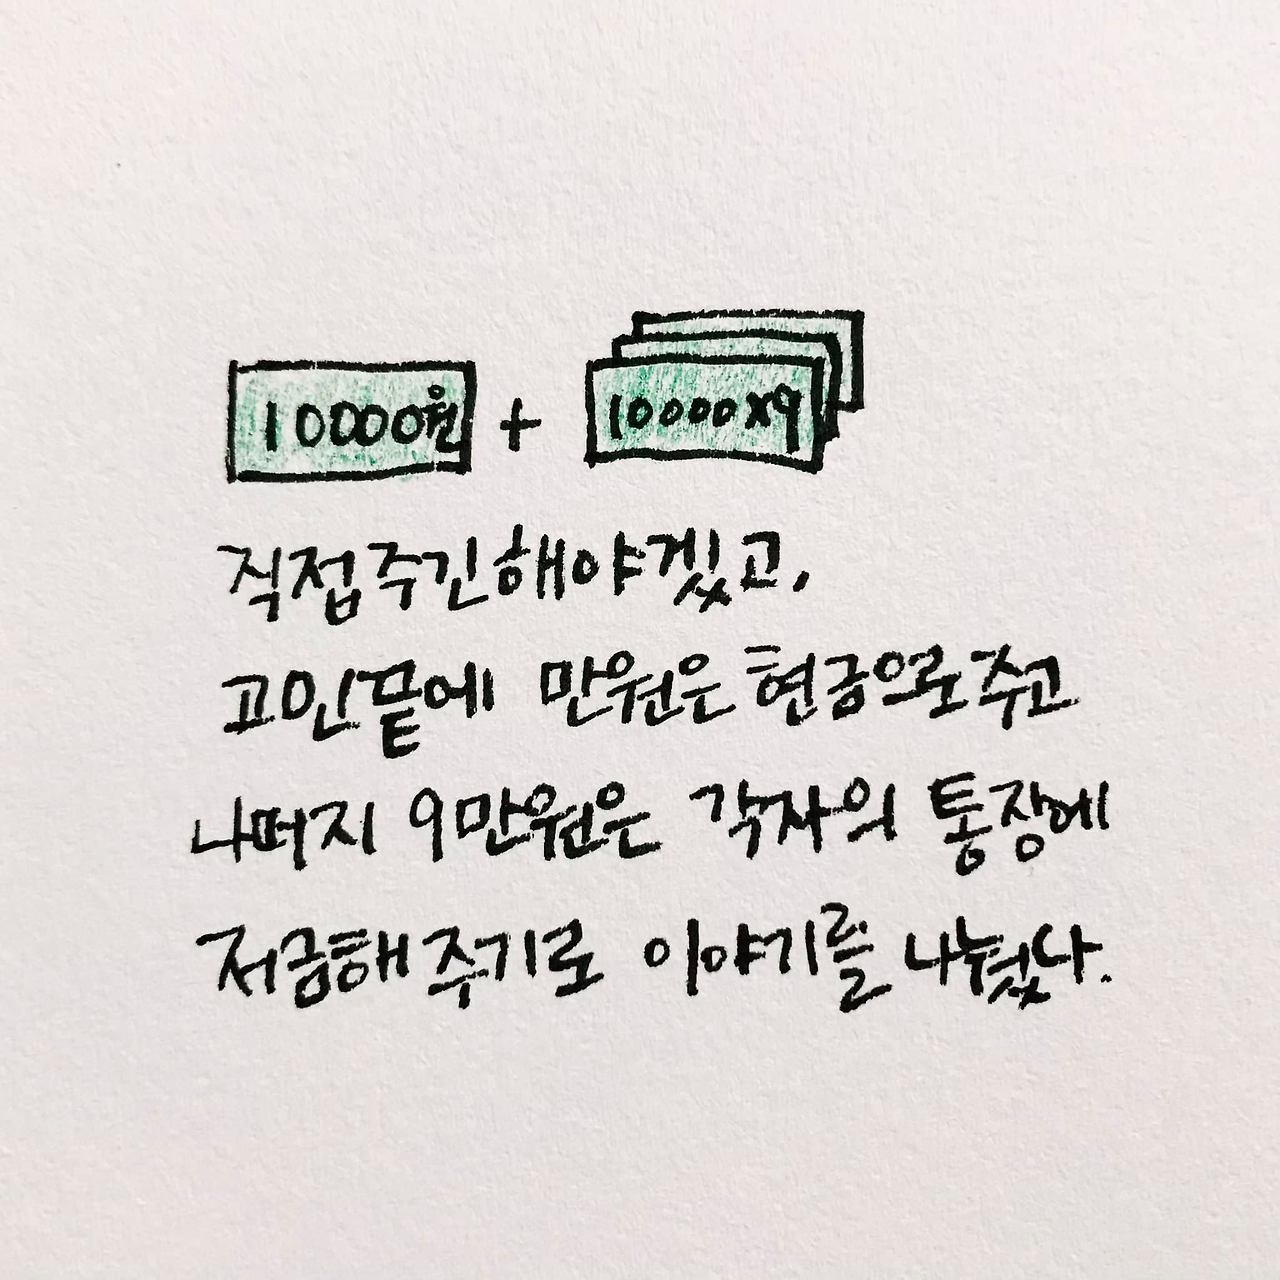 10000원 + 10000x9
직접 주긴 해야겠고,
고민끝에 만원은 현금으로 주고
나머지 9만원은 각자의 통장에
저금해 주기로 이야기를 나눴다.